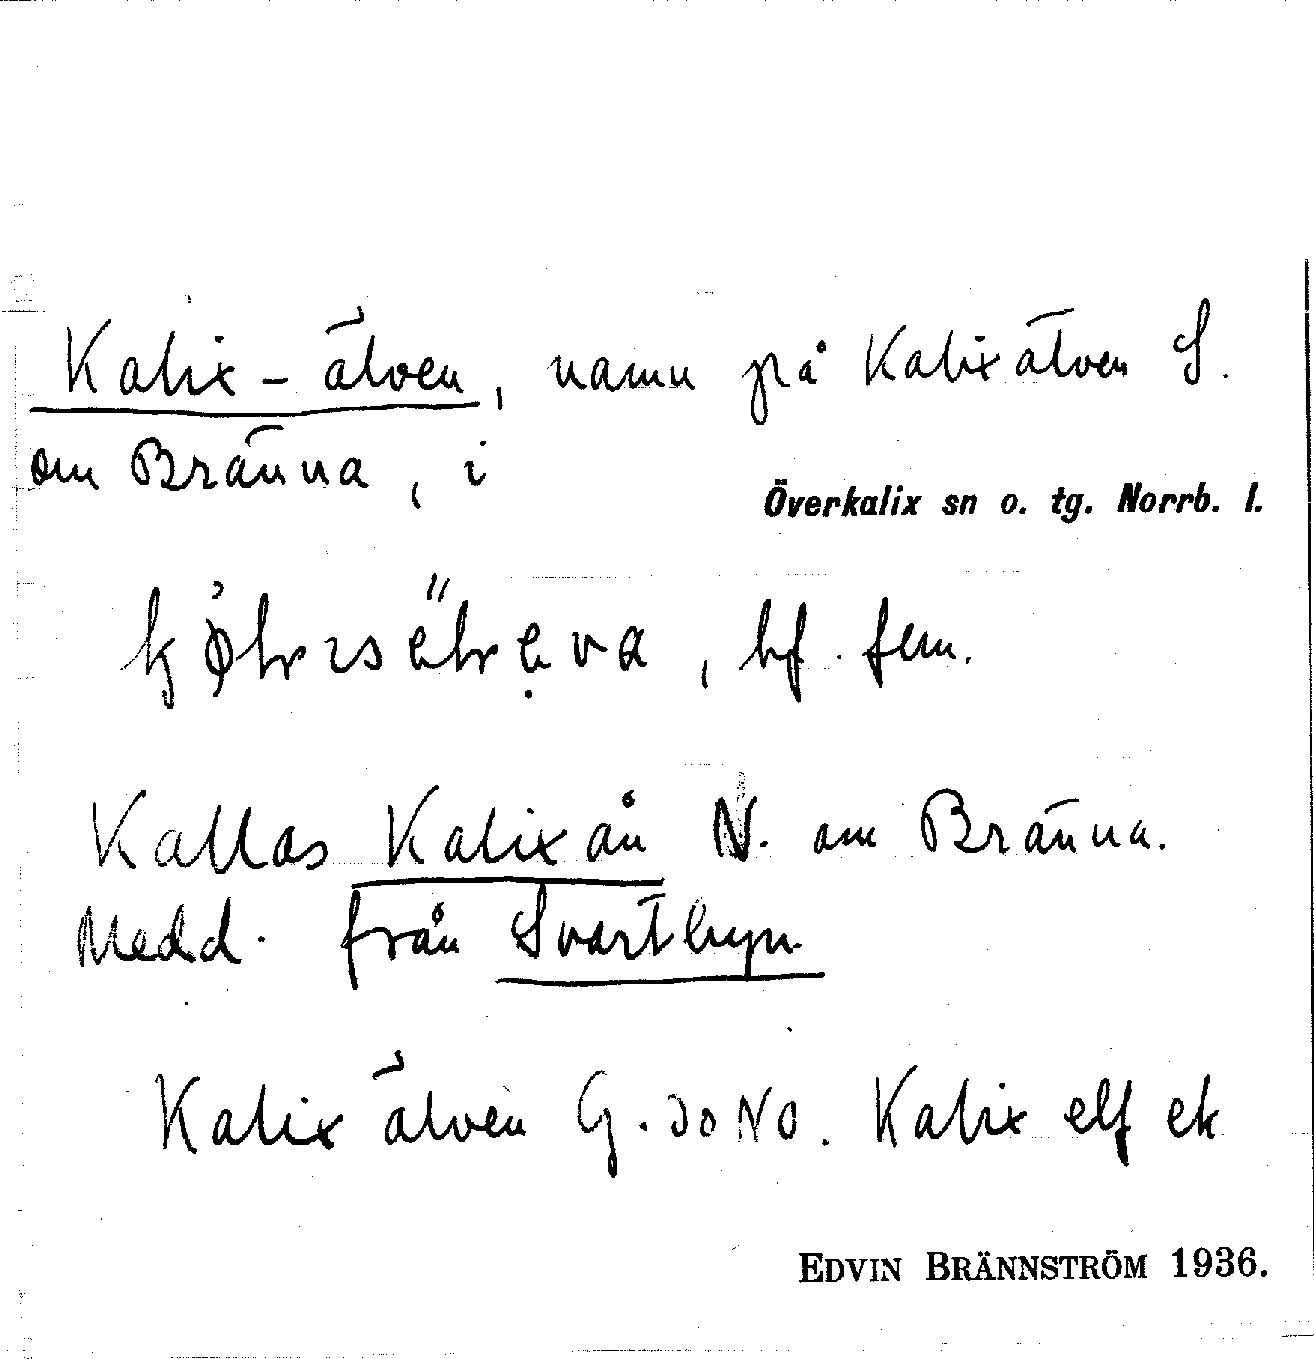 Kalix-älven, namn på Kalixälven S.
om Bränna, i
Överkalix sn o. tg. Norrb. l.
, bf. fem.
Kallas Kalixån N. om Bränna.
Medd. från Svartbyn
Kalix älven G. Jo No. Kalix elf ek
EDVIN BRÄNNSTRÖM 1936.